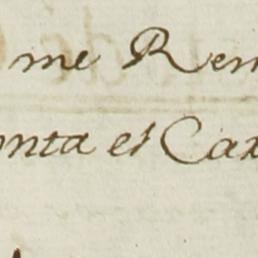 me Rem
onta el Cax